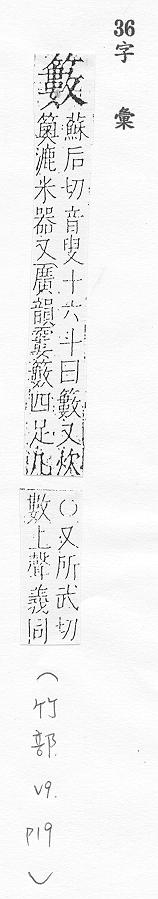 36
字彙
籔
蘇后切音叟十六斗曰籔又炊
䉛漉米器又廣韻窶籔四足几
○又所武切
數上聲義同
(竹部 V9. P19)